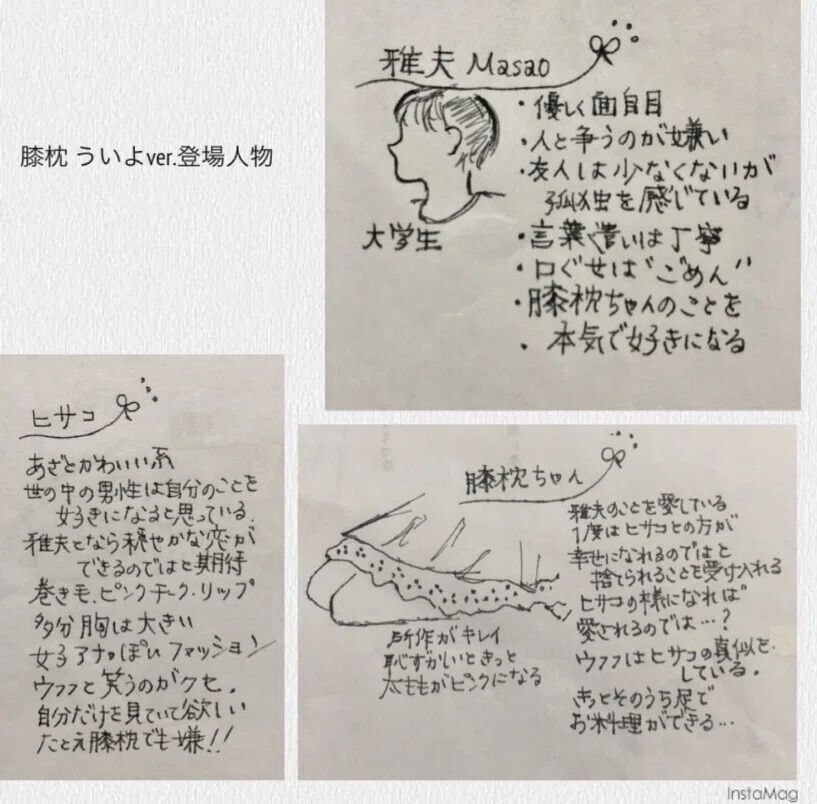 膝枕 ういよver.登場人物
雅夫 Masao
・優しく面自目
・人と争うのが嫌い
・友人は少なくないが
孤独を感じている
・言葉遣いは丁寧
・口ぐせは"ごめん"
・膝枕ちゃんのことを
・本気で好きになる
大学生
ヒサコ
あざとかわいい系
世の中の男性は自分のことを
好きになると思っている.
雅夫となら穏やかな恋が
できるのではと期待
巻き毛、ピンクチーク・リップ
多分胸は大きい
女子アナっぽいファッション
ウフフと笑うのがクセ.
自分だけを見ていて欲しい
たとえ膝枕でも嫌!!
膝枕ちゃん
雅夫のことを愛している
1度はヒサコとの方が
幸せになれるのではと
捨てられることを受け入れる
ヒサコの様になれば
愛されるのでは…?
ウフフはヒサコの真似を
している.
きっとそのうち足で
お料理ができる…
所作がキレイ
恥ずかしいときっと
太ももがピンクになる
InstaMag